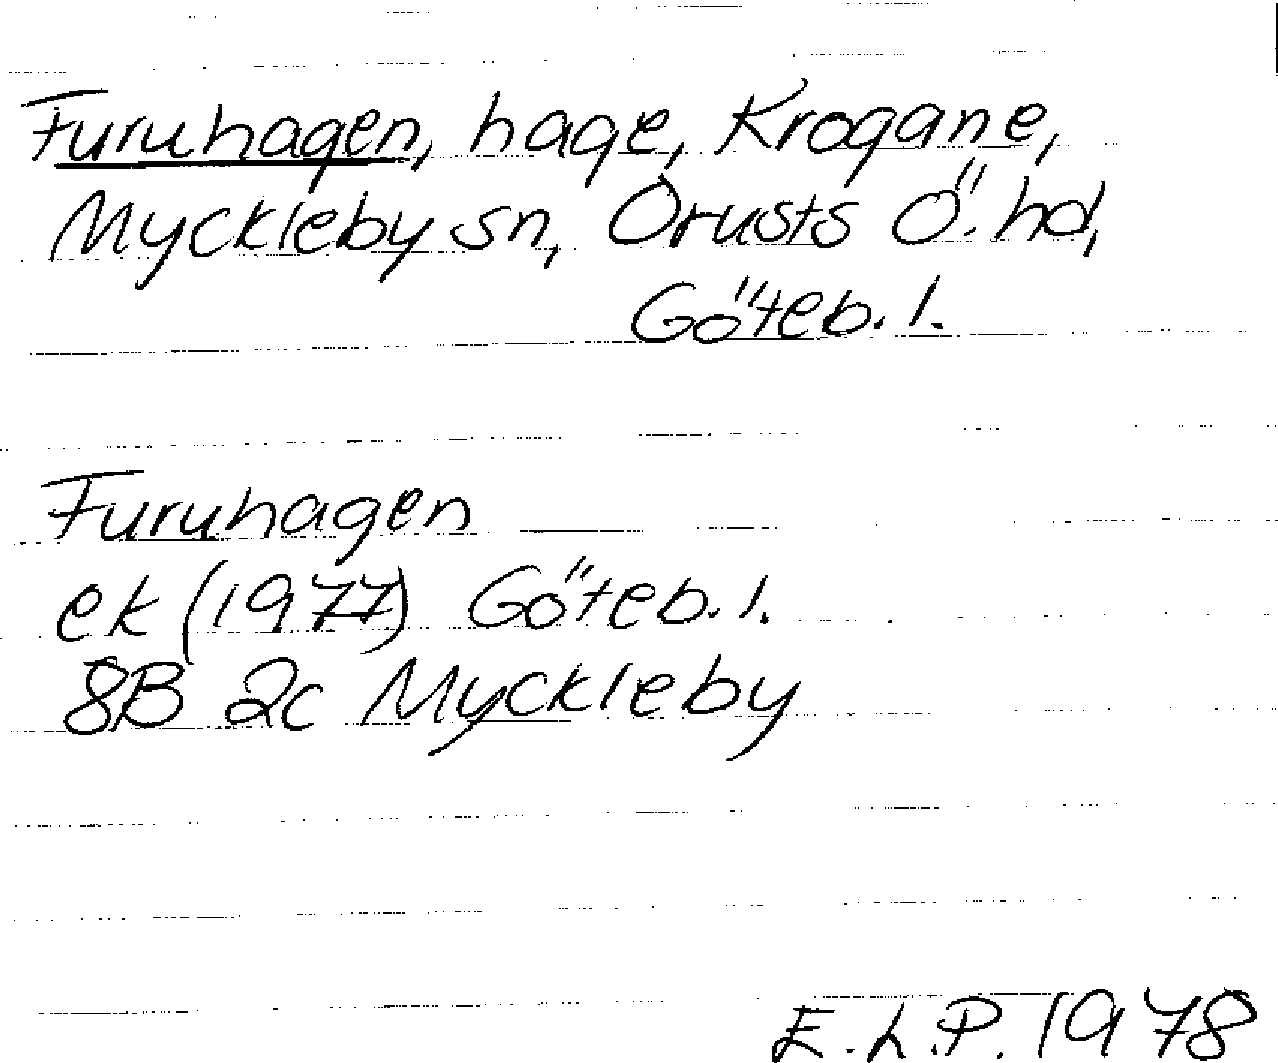 Furuhagen, hage, Krogane,
Myckleby sn, Orusts Ö. hd,
Göteb. l.
Furuhagen
ek (1977) Göteb. l.
8B 2c Myckleby
E.L.P. 1978